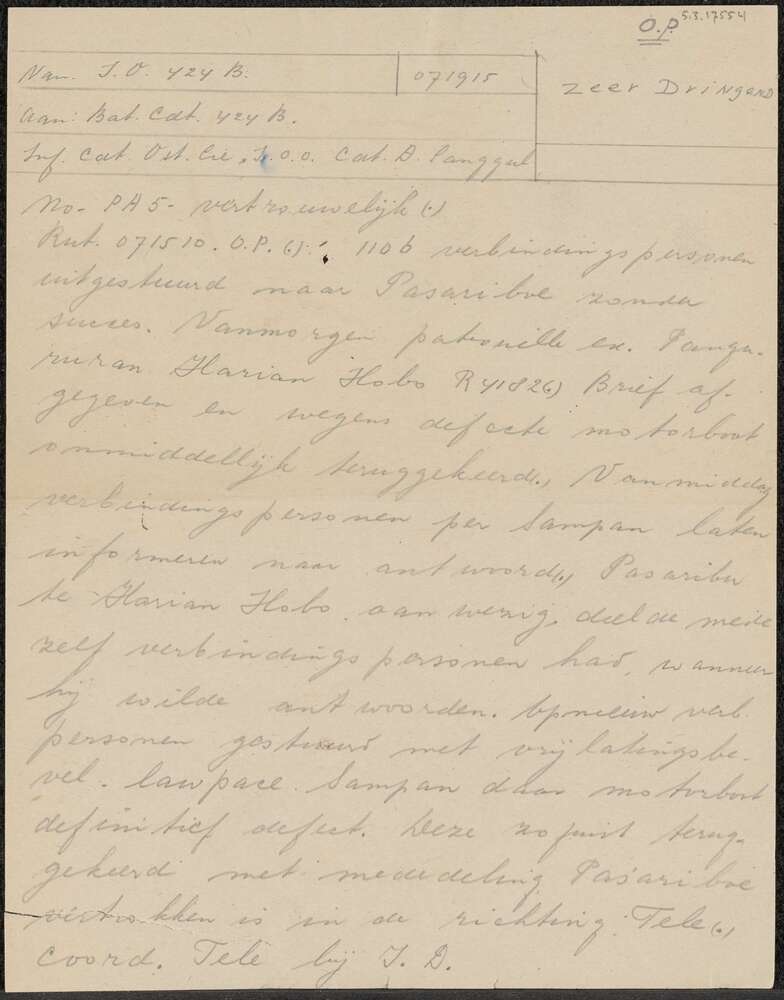 O.P. 5.3.17554
Van. I.O. 424 B. 071915 Zeer Dringend
Aan: Bat. Cdt. 424 B.
Inf. Cdt. Ost. Cie, I.O.O. Cdt. D. Panggul
No. PA5- vertrouwelijk (.)
Rut. 071510. O.P. (.) 1106 verbindingspersonen
uitgestuurd naar Pasariboe zonder
succes. Vanmorgen patrouille ex. Pangu-
ruran Harian Hobo R 41826) Brief af-
gegeven en wegens defecte motorboot
onmiddellijk teruggekeerd., Vanmiddag
verbindingspersonen per Sampan laten
informeren naar antwoord(.) Pasaribu
te Harian Hobo. aanwezig, deelde mede
zelf verbindingspersonen had, wanneer
hij wilde antwoorden. Opnieuw verb.
personen gestuurd met vrijlatingsbe-
vel. lawpace. Sampan daar motorboot
definitief defect. Deze zojuist terug-
gekeerd met mededeling Pasariboe
vertrokken is in de richting Tele (.)
coord. Tele bij I.D.